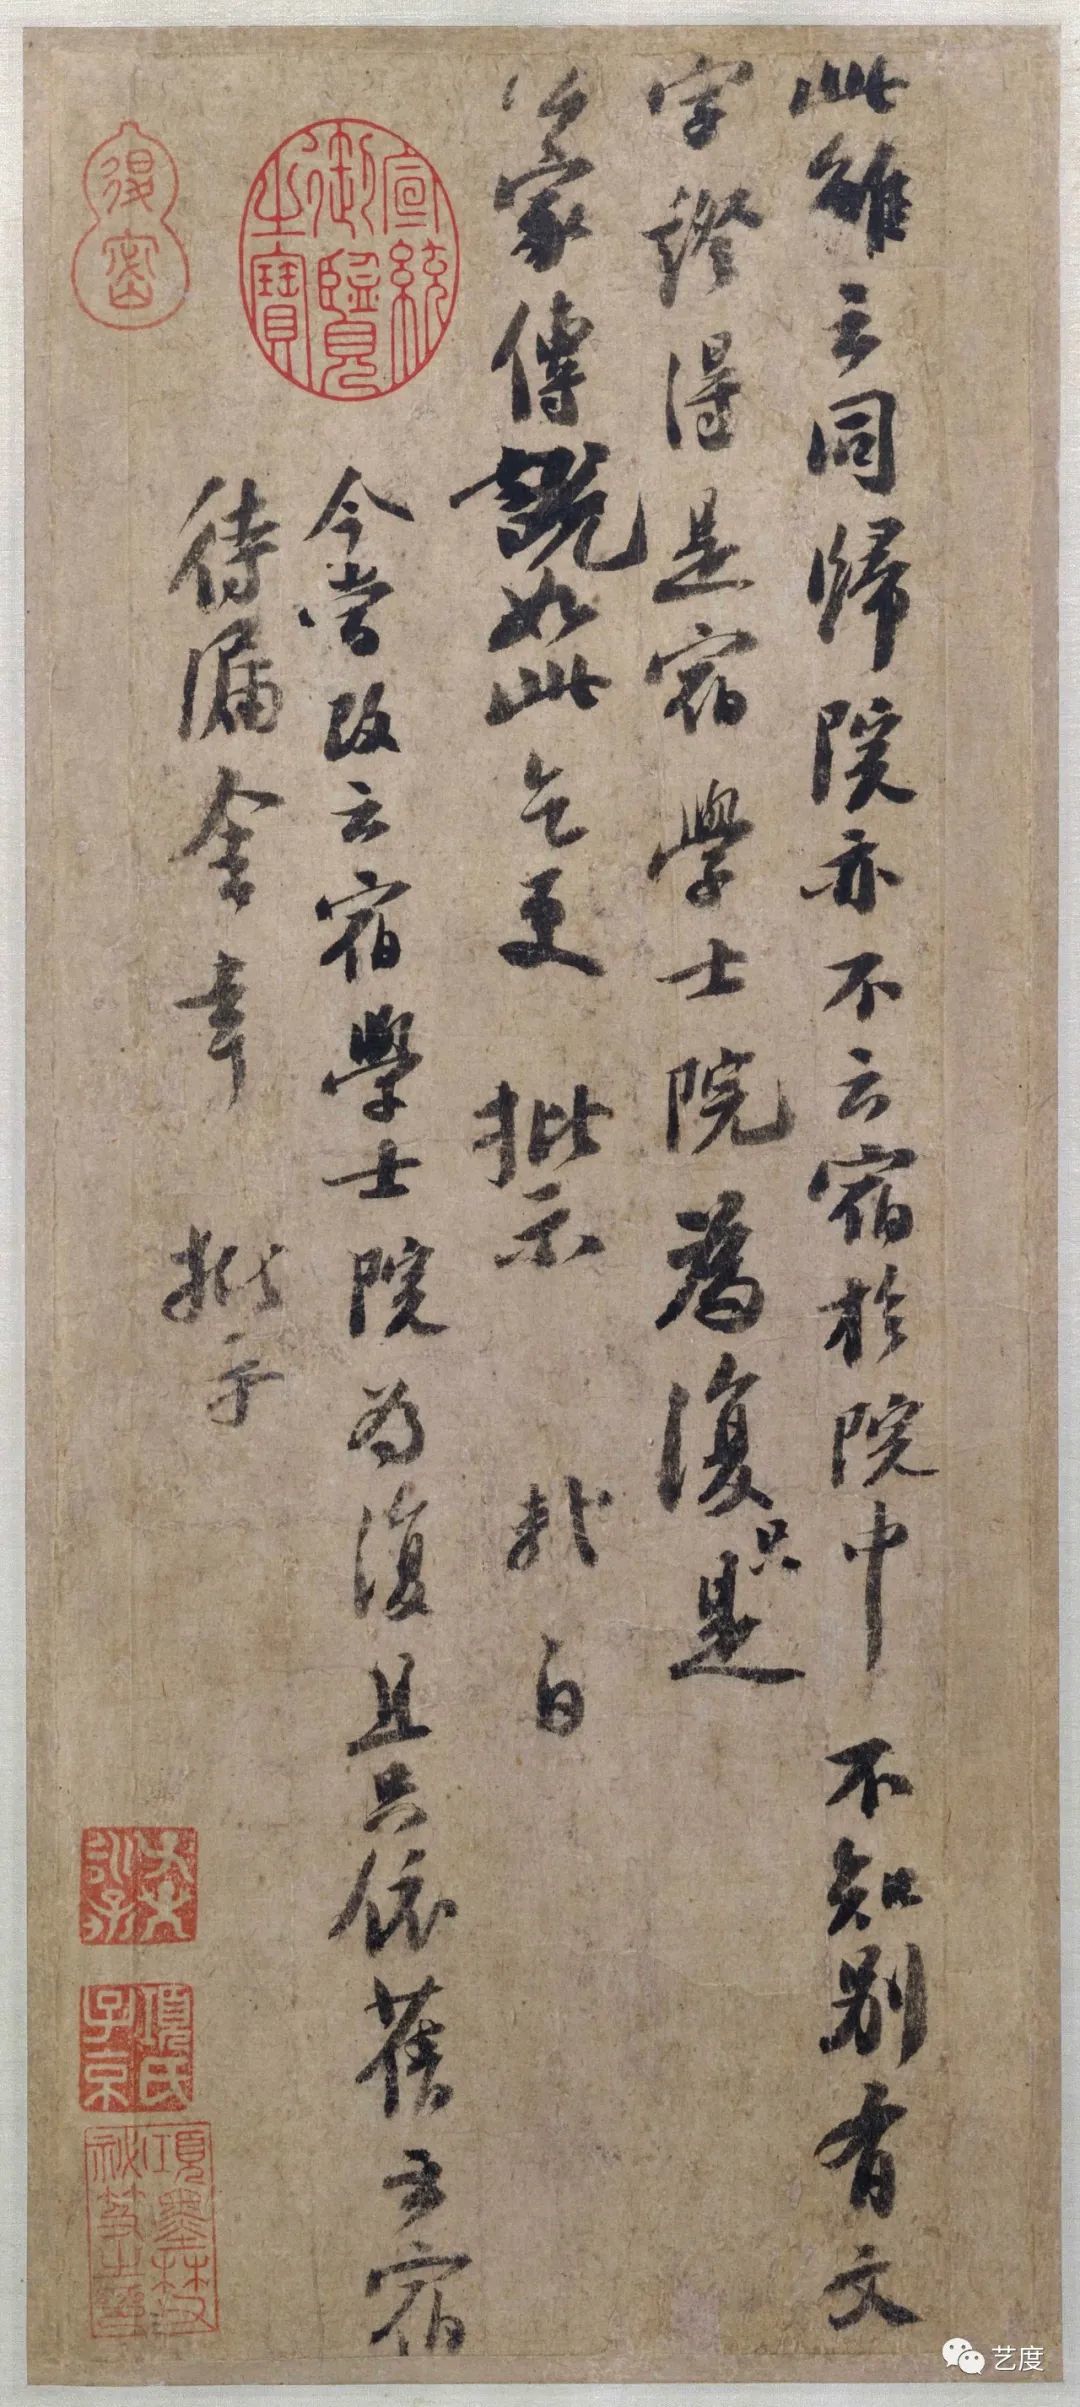 此雖云同歸院亦不云宿於院中不知別有文
字證得是宿學士院為復只是
公家傳說如此乞更批示軾白
今當改云宿學士院為復且只依舊云宿
待漏舍幸批示
宣統御覽之寶
項氏子京
項墨林父祕笈之印
艺度